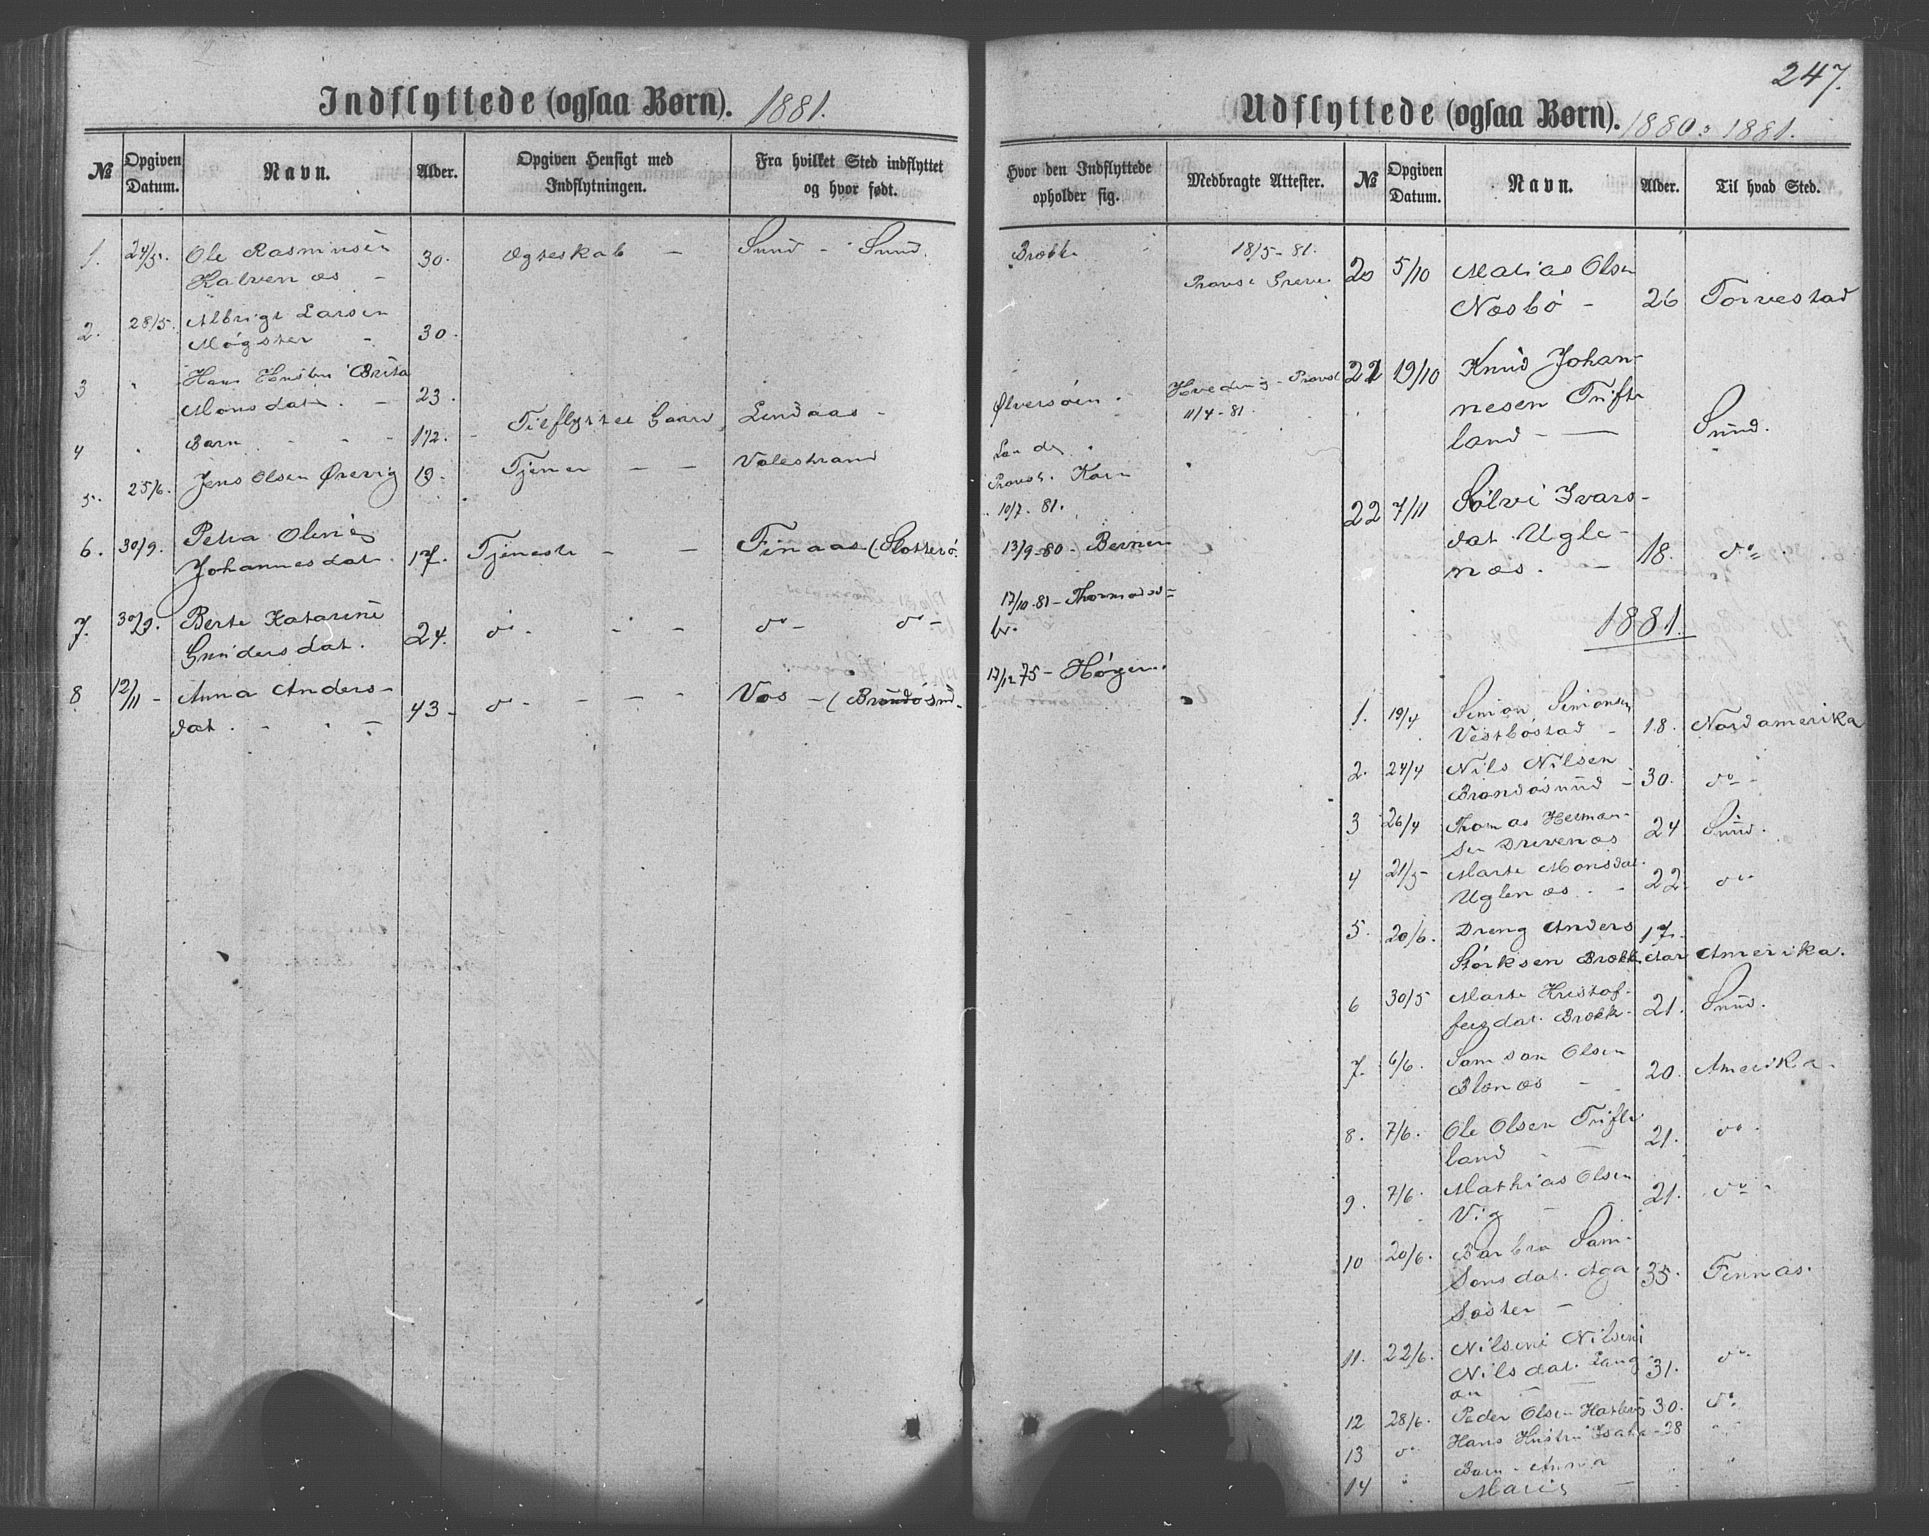 247.
Indflyttede (ogsaa Børn). 1881.
№ Opgiven Datum. Navn. Alder. Opgiven Hensigt med Indflytningen. Fra hvilket Sted indflyttet og hvor født.
Hvor den Indflyttede opholder sig. Medbragte Attester.
1. 24/5. Ole Rasmusen 30. Ægteskab - Sund - Sund. Brække 18/5-81.
Kalvenæs - Provst Greve.
2. 28/5. Albrigt Larsen
Møgster - 30.
3 " Hans Hustru Brita
Monsdat. - 23. Tilflyttet Gaard, Lindaas - Ølversøen. Hveding - Provst
11/4-81.
4 " Barn - - - 1/2.
5. 25/6. Jens Olsen Ørevig 19. Tjener - - Valestrand Provst.
10/7. 81.
6. 30/9. Petra Oline
Johannesdat. 17. Tjeneste - - Finaas (Slotterø. 13/9-80 - Bernen
7. 30/9. Berte Katarine 17/10-81 - Thormodsæ-
Gundersdat. 24. do - - - do - do - br.
8 12/11 - Anna Anders-
dat. - - - 43 - do - - - Vos - (Brandøsund. 17/12 75 - Høyer.
Udflyttede (ogsaa Børn). 1880 : 1881.
№ Opgiven Datum. Navn. Alder. Til hvad Sted.
20 5/10 Matias Olsen
Næsbø - 26 Torvestad
21 19/10 Knud Johan-
nesen Trifte
land - Sund.
22 7/11 Sølvi Ivars-
dat Ugle-
næs. - 18. do
1881.
1. 19/4 Simon Simonsen
Vestbøstad - 18. Nordamerika
2. 24/4 Nils Nilsen
Brandøsund - 30. do -
3 26/4 Thomas Herman-
sen Drevenæs 24 Sund.
4 21/5 Marte Monsdat.
Uglenæs. - 22. do
5. 20/6. Dreng Anders 17.
Størksen Brække Aar Amerika.
6 30/5 Marte Kristof-
fersdat. Brækk. 21. Sund.
7. 6/6. Samson Olsen
Blænæs - 20. Amerika.
8. 7/6. Ole Olsen Trifte
land - 21. do.
9. 7/6. Mathias Olsen
Vig - 21. do -
10 20/6. Barbra Sam-
sonsdat. Aga
søster - 35. Finnas.
11. 22/6. Nilsine Nilsine
Nilsdat. Lang-
øn - 31. do
12 28/6. Peder Olsen 30. do
13 do Hans Hustru 28 "
Barn - Anna "
14 " Marie - "